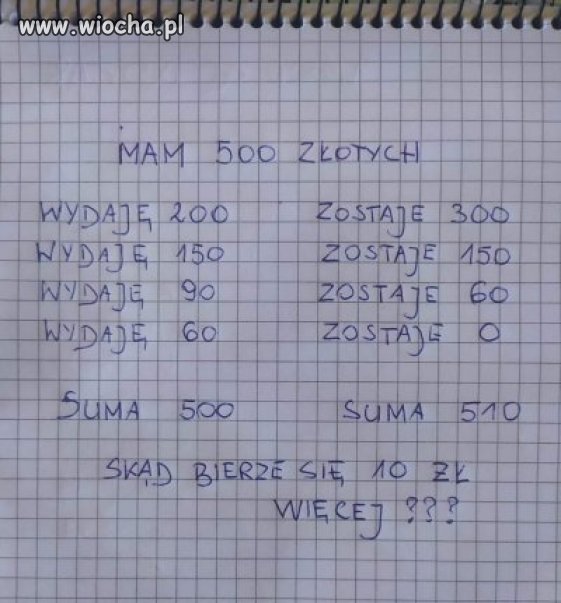 www.wiocha.pl
MAM 500 ZŁOTYCH
WYDAJĘ 200 ZOSTAJE 300
WYDAJĘ 150 ZOSTAJE 150
WYDAJĘ 90 ZOSTAJE 60
WYDAJĘ 60 ZOSTAJE 0
SUMA 500 SUMA 510
SKĄD BIERZE SIĘ 10 ZŁ
WIĘCEJ ???